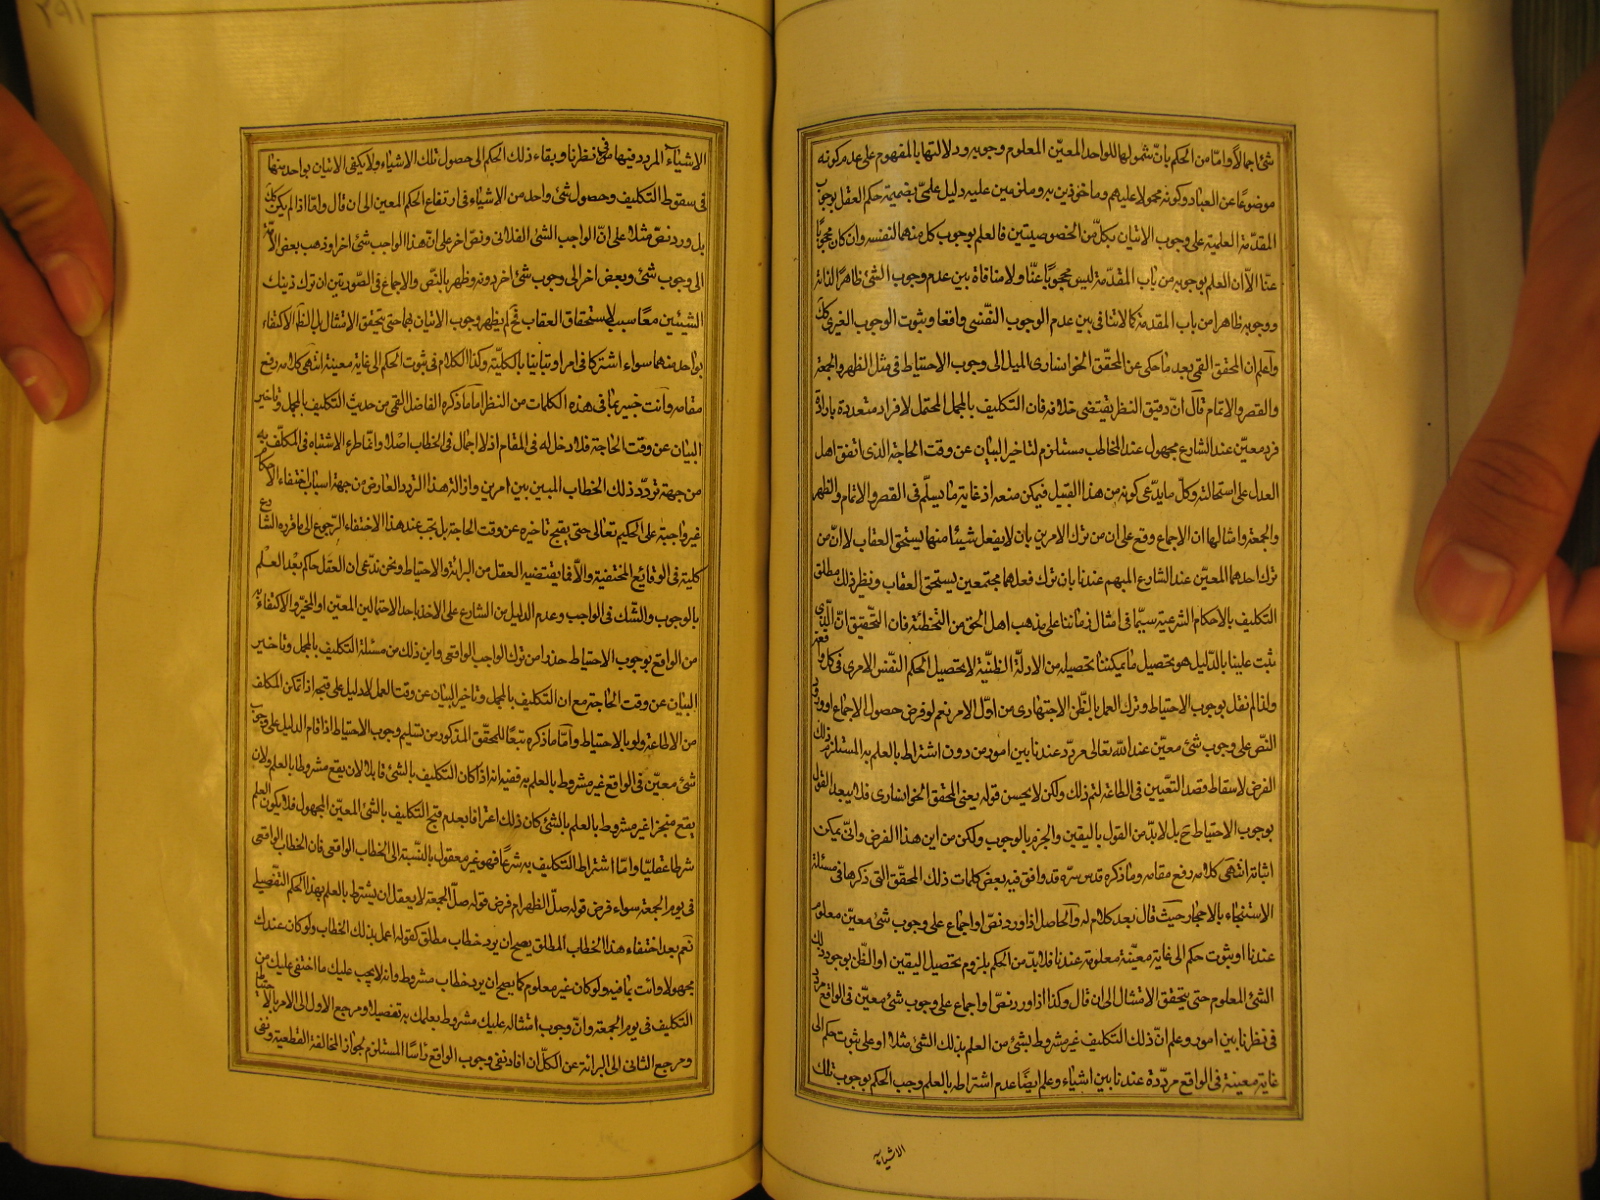 شئ اجمالاً وامّا من الحكم بانّ شمولها للواحد المعيّن المعلوم وجوبه ودلالتها بالمفهوم على عدم كونه
موضوعًا عن العباد وكونه محمولا عليهم وماخوذين به وملزمين عليه دليل علمىّ بضميمة حكم العقل بوجوب
المقدّمة العلمية على وجوب الاتيان بكلّ من الخصوصيتين فالعلم بوجوب كل منهما لنفسه وان كان محجوبًا
عنّا الاّ ان العلم بوجوبه من باب المقدّمة ليس محجوبًا عنّا ولا منافاة بين عدم وجوب الشئ ظاهرًا لذاته
ووجوبه ظاهرا من باب المقدمة كما لا تنافى بين عدم الوجوب النّفسى واقعا وثبوت الوجوب الغيرى كك
واعلم ان المحقق القمى بعد ما حكى عن المحقّق الخوانسارى الميل الى وجوب الاحتياط فى مثل الظهر والجمعة
والقصر والاتمام قال انّ دقيق النظر يقتضى خلافه فان التكليف بالمجمل المحتمل لافراد متعددة بارادة
فرد معيّن عند الشارع مجهول عند المخاطب مستلزم لتاخير البيان عن وقت الحاجة الذى اتفق اهل
العدل على استحالته وكلّ ما يدّعى كونه من هذا القبيل فيمكن منعه اذ غاية ما يسلّم فى القصر والاتمام والظهر
والجمعة وامثالها ان الاجماع وقع على ان من ترك الامرين بان لا يفعل شيئا منهما يستحق العقاب لا انّ من
ترك احدهما المعيّن عند الشارع المبهم عندنا بان ترك فعلهما مجتمعين يستحق العقاب ونظير ذلك مطلق
التكليف بالاحكام الشرعيّة سيّما فى امثال زماننا على مذهب اهل الحق من التخطئة فان التحقيق انّ الّذى
ثبت علينا بالدّليل هو تحصيل ما يمكننا تحصيله من الادلّة الظنّيّة لا تحصيل الحكم النّفس الامرى فى كل واقعة
ولذا لم نقل بوجوب الاحتياط وترك العمل بالظّن الاجتهادى من اوّل الامر نعم لو فرض حصول الاجماع او ورود
النّص على وجوب شئ معيّن عند اللّه تعالى مردّد عندنا بين امور من دون اشتراط بالعلم به المستلزم ذلك
الفرض لاسقاط قصد التّعيين فى الطاعة لتم ذلك ولكن لا يحسن قوله يعنى المحقق الخوانسارى فلا يبعد القول
بوجوب الاحتياط ح بل لا بدّ من القول باليقين والجزم بالوجوب ولكن من اين هذا الفرض وانّى يمكن
اثباته انتهى كلامه رفع مقامه وما ذكره قدس سرّه قد وافق فيه بعض كلمات ذلك المحقّق التى ذكرها فى مسئلة
الاستنجاء بالاحجار حيث قال بعد كلام له والحاصل اذا ورد نصّ او اجماع على وجوب شئ معيّن معلوم
عندنا او ثبوت حكم الى غاية معيّنة معلومة عندنا فلا بدّ من الحكم بلزوم تحصيل اليقين او الظّن بوجود ذلك
الشئ المعلوم حتى يتحقق الامتثال الى ان قال وكذا اذا ورد نصّ او اجماع على وجوب شئ معيّن فى الواقع مردد
فى نظرنا بين امور وعلم انّ ذلك التكليف غير مشروط بشئ من العلم بذلك الشئ مثلا او على ثبوت حكم الى
غاية معينة فى الواقع مردّدة عندنا بين اشياء وعلم ايضًا عدم اشتراطه بالعلم وجب الحكم بوجوب تلك
الاشياء
٢٩١
الاشيآء المردد فيها فى نظرنا وبقاء ذلك الحكم الى حصول تلك الاشياء ولا يكفى الاتيان بواحد منها
فى سقوط التكليف وحصول شئ واحد من الاشياء فى ارتفاع الحكم المعين الى ان قال وامّا اذا لم يكن كك
بل ورد نصّ مثلا على انّ الواجب الشئ الفلانى ونصّ اخر على انّ هذا الواجب شئ اخر او ذهب بعض الامّة
الى وجوب شئ وبعض اخر الى وجوب شئ اخر دونه وظهر بالنّص والاجماع فى الصّورتين ان ترك ذينك
الشيئين معًا سبب لاستحقاق العقاب فح لم يظهر وجوب الاتيان بهما حتى يتحقق الامتثال بل الظّ الاكتفاء
بواحد منهما سواء اشتركا فى امر او تباينا بالكليّة وكذا الكلام فى ثبوت الحكم الى غاية معينة انتهى كلامه رفع
مقامه وانت خبير بما فى هذه الكلمات من النظر اما ما ذكره الفاضل القمى من حديث التكليف بالمجمل وتاخير
البيان عن وقت الحاجة فلا دخل له فى المقام اذ لا اجمال فى الخطاب اصلا وانّما طرء الاشتباه فى المكلّف به
من جهة تردّد ذلك الخطاب المبين بين امرين وازالة هذا التردد العارض من جهة اسباب اختفاء الاحكام
غير واجبة على الحكيم تعالى حتى يقبح تاخيره عن وقت الحاجة بل يجب عند هذا الاختفاء الرّجوع الى ما قرره الشارع
كلية فى الوقايع المختفية والاّ فما يقتضيه العقل من البرائة والاحتياط ونحن ندّعى ان العقل حاكم بعد العلم
بالوجوب والشّك فى الواجب وعدم الدليل من الشارع على الاخذ باحد الاحتمالين المعيّن او المخيّر والاكتفاء به
من الواقع بوجوب الاحتياط حذرا من ترك الواجب الواقعى واين ذلك من مسئلة التكليف بالمجمل وتاخير
البيان عن وقت الحاجة مع ان التكليف بالمجمل وتاخير البيان عن وقت العمل لا دليل على قبحه اذا تمكن المكلف
من الاطاعة ولو بالاحتياط وامّا ما ذكره تبعًا للمحقّق المذكور من تسليم وجوب الاحتياط اذا قام الدليل على وجوب
شئ معيّن فى الواقع غير مشروط بالعلم به ففيه انه اذا كان التكليف بالشئ قابلا لان يقع مشروطا بالعلم ولان
يقع منجزا غير مشروط بالعلم بالشئ كان ذلك اعترافا بعدم قبح التكليف بالشئ المعيّن المجهول فلا يكون العلم
شرطا عقليّا وامّا اشتراط التكليف به شرعًا فهو غير معقول بالنّسبة الى الخطاب الواقعى فان الخطاب الواقعى
فى يوم الجمعة سواء فرض قوله صلّ الظهر ام فرض قوله صلّ الجمعة لا يعقل ان يشترط بالعلم بهذا الحكم التفصيلى
نعم بعد اختفاء هذا الخطاب المطلق يصح ان يرد خطاب مطلق كقوله اعمل بذلك الخطاب ولو كان عندك
مجهولا وائت بما فيه ولو كان غير معلوم كما يصح ان يرد خطاب مشروط وانه لا يجب عليك ما اختفى عليك من
التكليف فى يوم الجمعة وانّ وجوب امتثاله عليك مشروط بعلمك به تفصيلا ومرجع الاول الى الامر بالاحتياط
ومرجع الثانى الى البرائة عن الكلّ ان افاد نفى وجوب الواقع راسًا المستلزم لجواز المخالفة القطعية ونفى